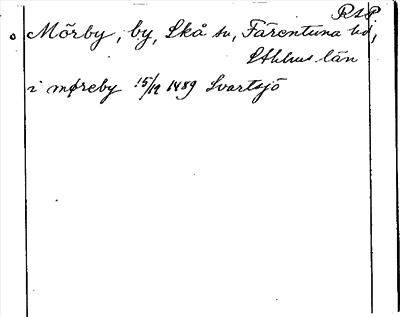 RAP
Mörby, by, Skå sn, Färentuna hd,
Sthlms län
i møreby 15/12 1489 Svartsjö